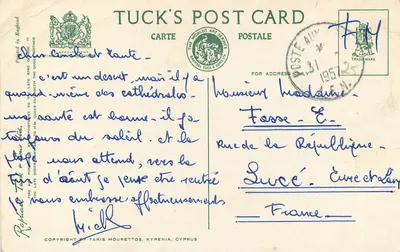 TUCK'S POST CARD
CARTE POSTALE
FOR ADDRESS
TRADE MARK
POSTE AUX
31
1957
F M
Oncle et Tante
c'est un desert, mais il y a
quand-même des cathédrales
ma santé est bonne - il y a
toujours du soleil. et la
plage nous attend, vers la
d'août je pense être rentré
nous embrasse affectueusement
Monsieur Madame
Fosse - E.
Rue de la République -
Lucé. Eure et Loir
France -
Raphael Tuck & Sons
COPYRIGHT BY TAKIS MOURETTOS, KYRENIA, CYPRUS